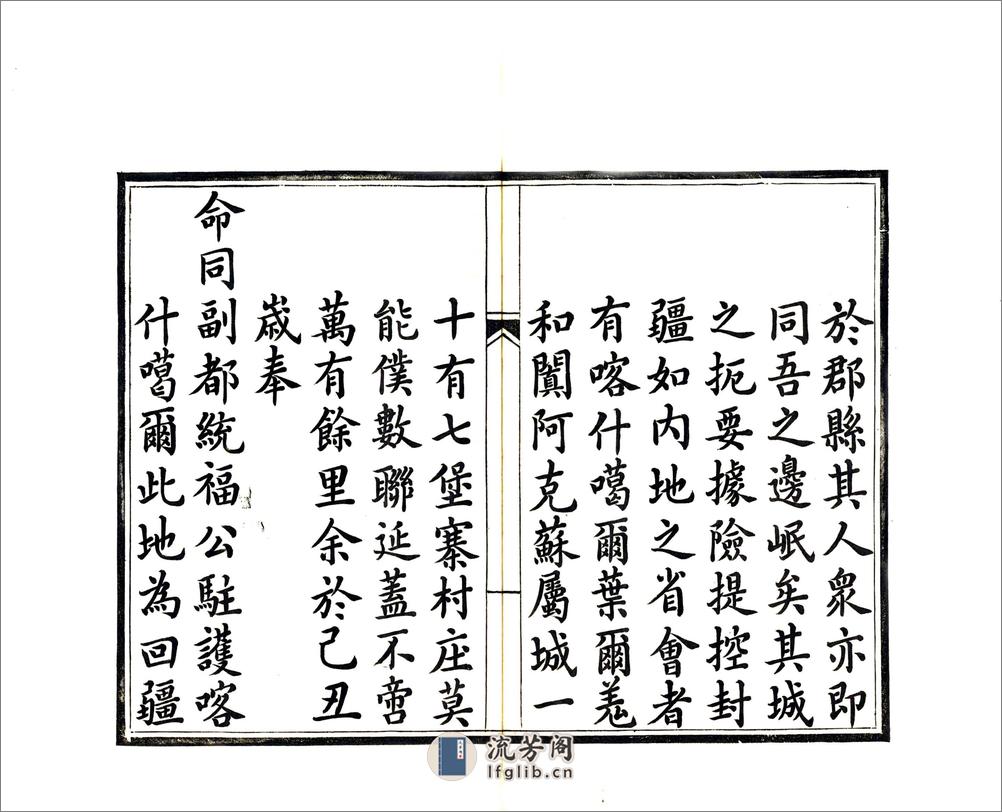 於郡縣其人衆亦即
同吾之邊岷矣其城
之扼要據險提控封
疆如内地之省會者
有喀什噶爾葉爾羗
和闐阿克蘇屬城一
十有七堡寨村庄莫
能僕數聯延蓋不啻
萬有餘里余於己丑
歲奉
命同副都統福公駐護喀
什噶爾此地為回疆
流芳阁
lfglib.cn